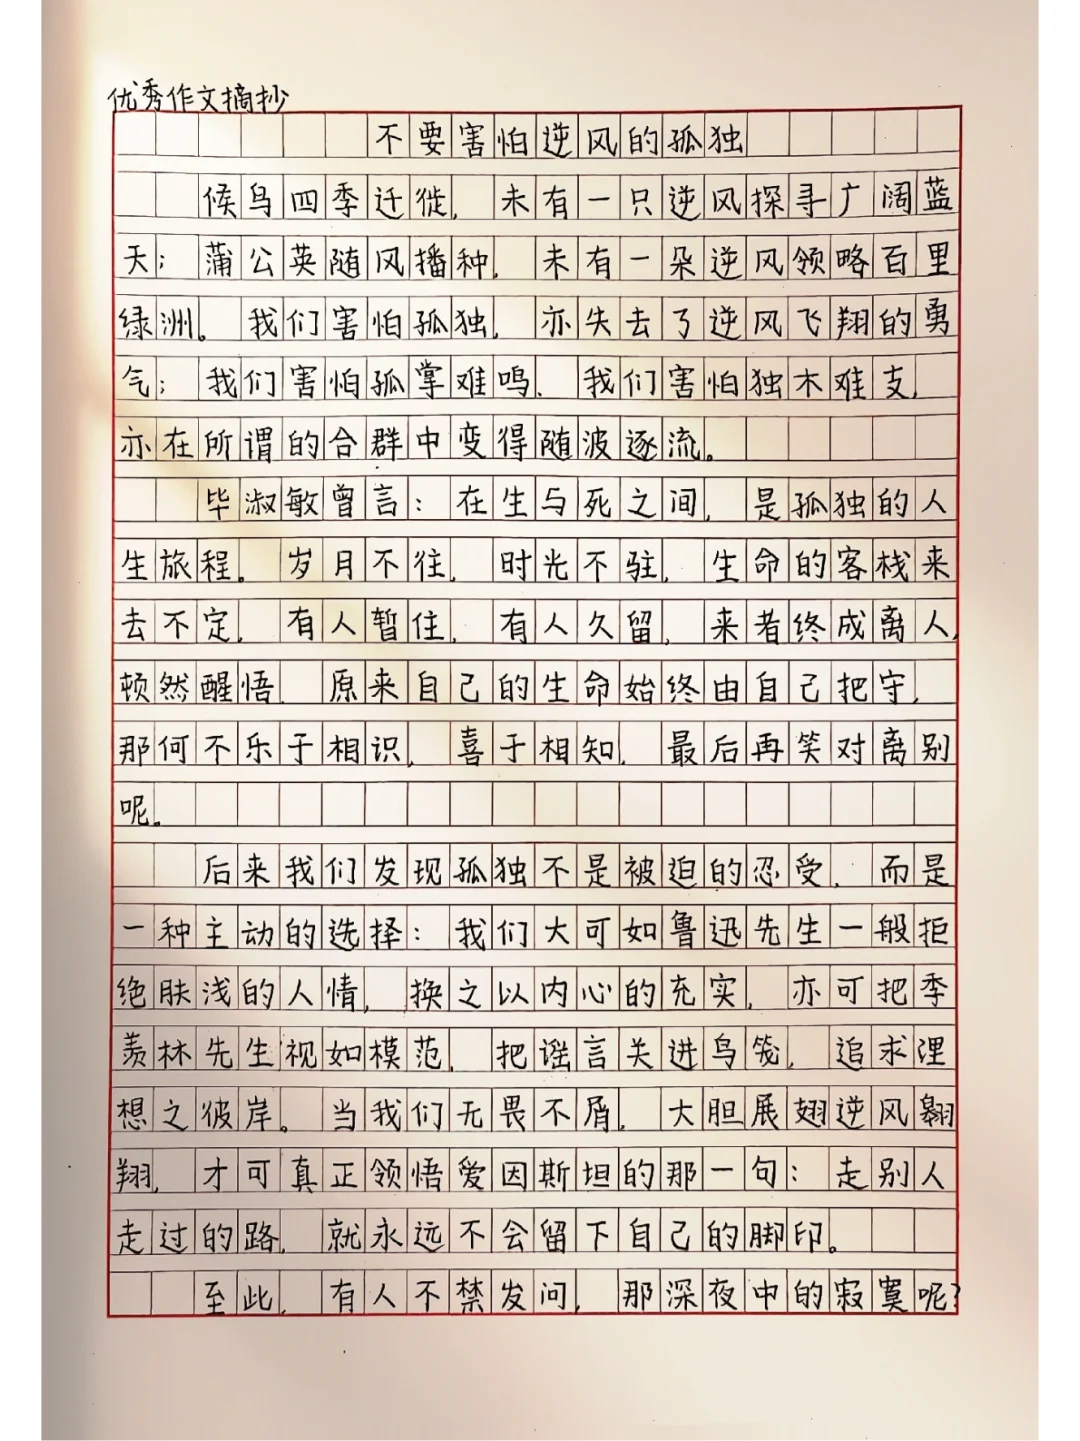 优秀作文摘抄
不要害怕逆风的孤独
候鸟四季迁徙，未有一只逆风探寻广阔蓝
天；蒲公英随风播种，未有一朵逆风领略百里
绿洲。我们害怕孤独，亦失去了逆风飞翔的勇
气；我们害怕孤掌难鸣，我们害怕独木难支，
亦在所谓的合群中变得随波逐流。
毕淑敏曾言：在生与死之间，是孤独的人
生旅程。岁月不往，时光不驻，生命的客栈来
去不定，有人暂住，有人久留，来者终成离人，
顿然醒悟，原来自己的生命始终由自己把守，
那何不乐于相识，喜于相知，最后再笑对离别
呢。
后来我们发现孤独不是被迫的忍受，而是
一种主动的选择：我们大可如鲁迅先生一般拒
绝肤浅的人情，换之以内心的充实，亦可把季
羡林先生视如模范，把谣言关进鸟笼，追求理
想之彼岸。当我们无畏不屑，大胆展翅逆风翱
翔，才可真正领悟爱因斯坦的那一句：走别人
走过的路，就永远不会留下自己的脚印。
至此，有人不禁发问，那深夜中的寂寞呢？